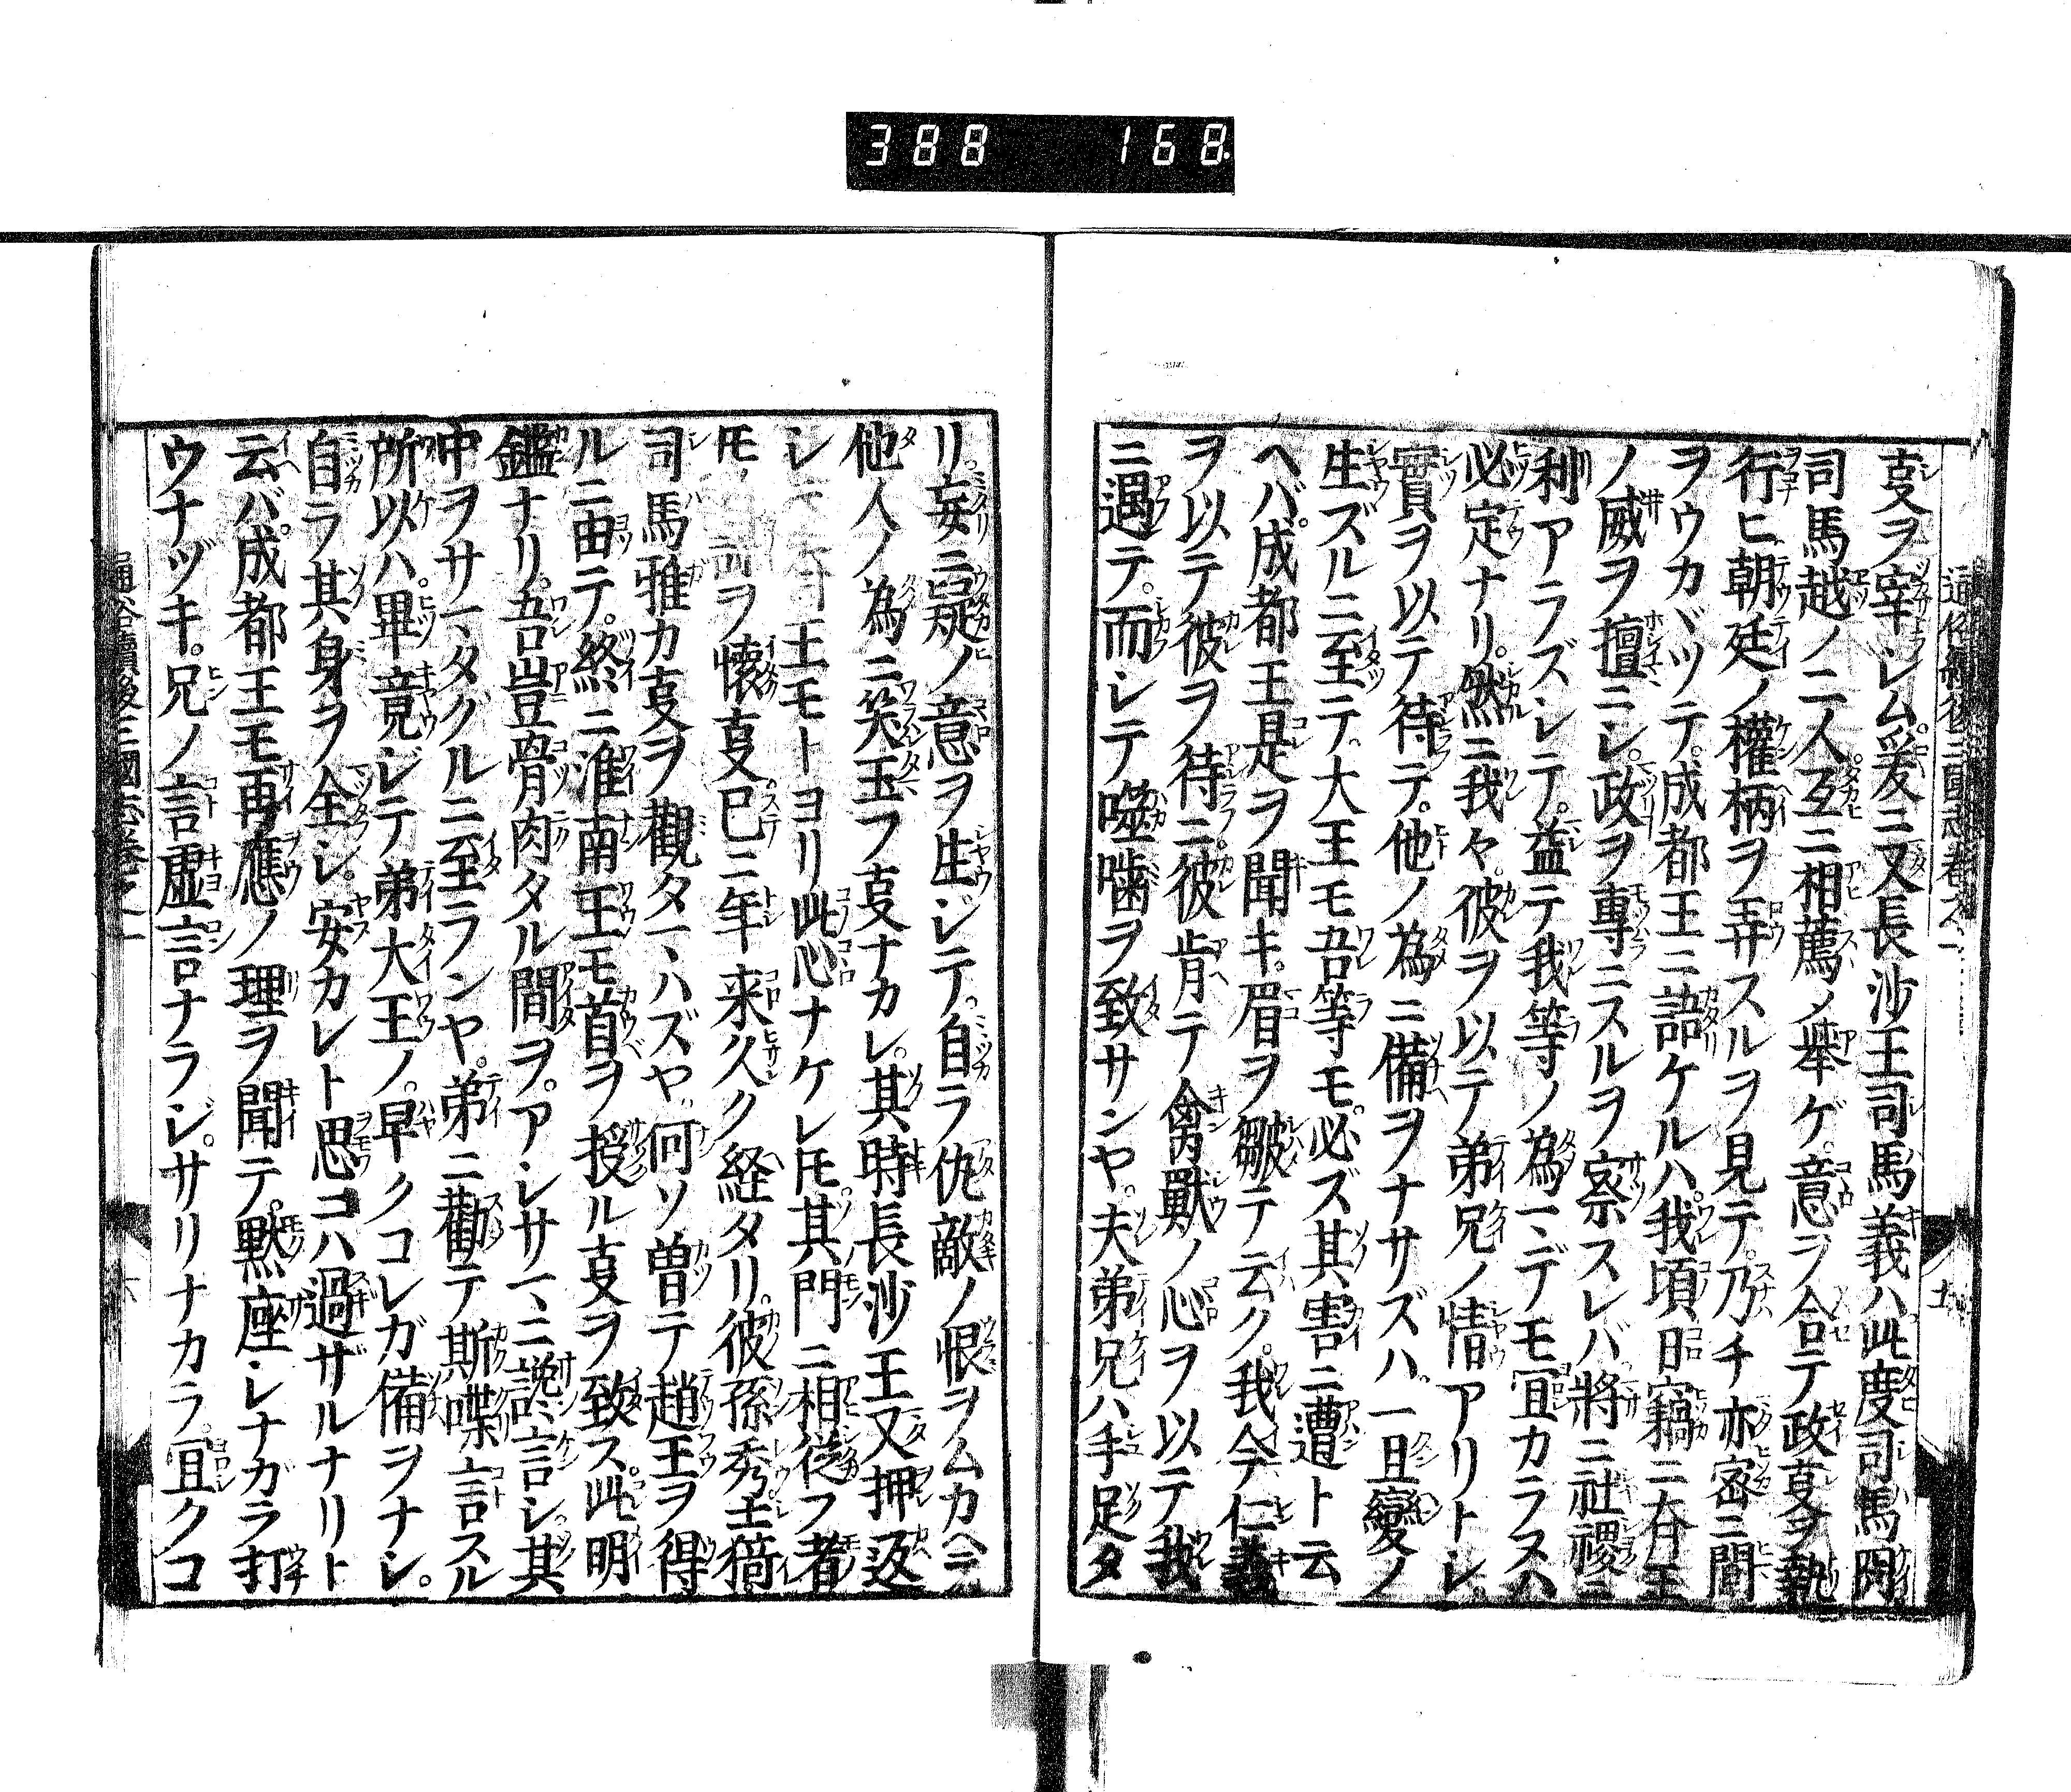 388 168
叓ヲ宰シム爰ニ又長沙王司馬義ハ此度司馬冏
司馬越ノ二人互ニ相薦メ挙ゲ意ヲ合セテ政叓ヲ執
行ヒ朝廷ノ權柄ヲ弄スルヲ見テ乃チ亦密ニ間
ヲウカヾツテ成都王ニ語ケルハ我頃日竊ニ存王
ノ威ヲ擅ニシ政ヲ專ニスルヲ察スレバ將ニ社稷ニ
利アラズシテ益テ我等ノ為マデモ宜カラスハ
必定ナリ然ニ我々彼ヲ以テ弟兄ノ情アリトシ
實ヲ以テ待テ他ノ為ニ備ヲナサズハ一旦變ノ
生ズルニ至テ大王モ吾等モ必ズ其害ニ遭ト云
ヘバ成都王是ヲ聞キ眉ヲ皺テ云ク我今仁義
ヲ以テ彼ヲ待ニ彼肯テ禽獸ノ心ヲ以テ我
ニ遇テ而シテ噬噛ヲ致サンヤ夫弟兄ハ手足タ
リ妄ニ疑ノ意ヲ生ジテ自ラ仇敵ノ恨ヲムカヘテ
他人ノ為ニ笑玉フ叓ナカレ其時長沙王又押返
シ 王モトヨリ此心ナケレ𪜈其門ニ相從フ者
𪜈 ヲ懐叓已ニ年来久ク経タリ彼孫秀士猗
司馬雅カ叓ヲ觀タマハズヤ何ソ曽テ趙王ヲ得
ルニ由テ終ニ淮南王モ首ヲ授ル叓ヲ致ス此明
鑑ナリ吾豈骨肉タル間ヲアシサマニ讒言シ其
中ヲサマタグルニ至ランヤ弟ニ勸テ斯喋言スル
所以ハ畢竟ジテ弟大王ノ早クコレガ備ヲナシ
自ラ其身ヲ全シ安カレト思コハ過ザルナリト
云バ成都王モ再應ノ理ヲ聞テ黙座シナガラ打
ウナヅキ兄ノ言虚言ナラジサリナカラ宜クコ